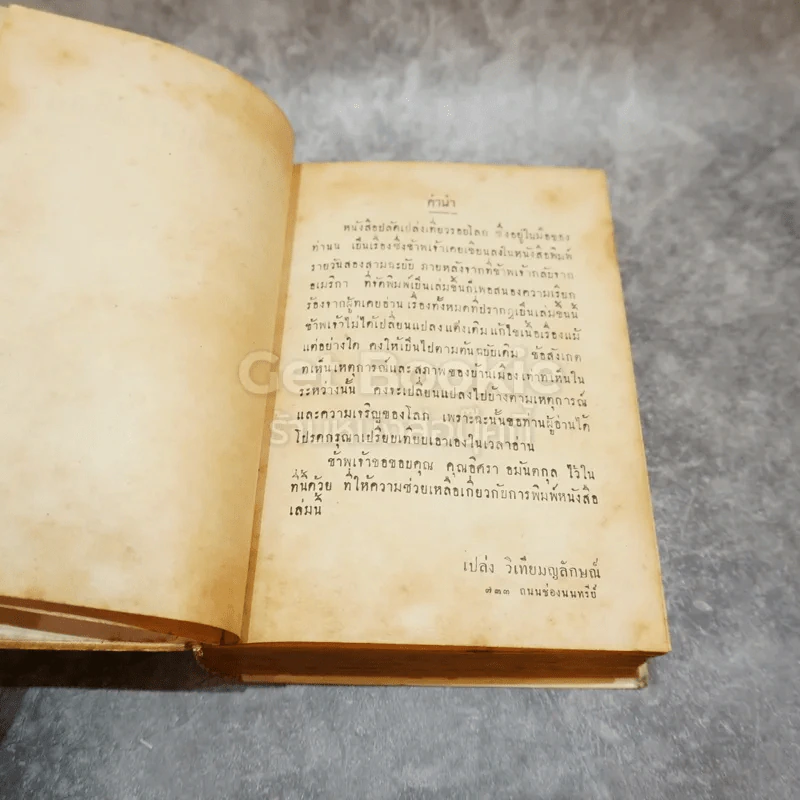 คำนำ
หนังสือปลัดเปล่งเที่ยวรอบโลก ซึ่งอยู่ในมือของ
ท่านน เป็นเรื่องซึ่งข้าพเจ้าเคยเขียนลงในหนังสือพิมพ์
รายวันสองสามฉะบับ ภายหลังจากที่ข้าพเจ้ากลับจาก
อเมริกา ที่จัดพิมพ์เป็นเล่มขึ้นก็เพื่อสนองความเรียก
ร้องจากผู้ที่เคยอ่าน เรื่องทั้งหมดที่ปรากฏเป็นเล่มขึ้นนี้
ข้าพเจ้าไม่ได้เปลี่ยนแปลง แต่งเติม แก้ไขเนื้อเรื่องแม้
แต่อย่างใด คงให้เป็นไปตามต้นฉบับเดิม ข้อสังเกต
ที่เห็น เหตุการณ์และสภาพของบ้านเมือง เท่าที่เห็นใน
ระหว่างนั้น คงจะเปลี่ยนแปลงไปบ้างตามเหตุการณ์
และความเจริญของโลก เพราะฉะนั้นขอท่านผู้อ่านได้
โปรดกรุณาเปรียบเทียบเอาเองในเวลาอ่าน
ข้าพเจ้าขอขอบคุณ คุณอิศรา อมันตกุล ไว้ใน
ที่นี้ด้วย ที่ให้ความช่วยเหลือเกี่ยวกับการพิมพ์หนังสือ
เล่มนี้
เปล่ง วิเทียมญลักษณ์
๗๓๓ ถนนช่องนนทรีย์
Get Book